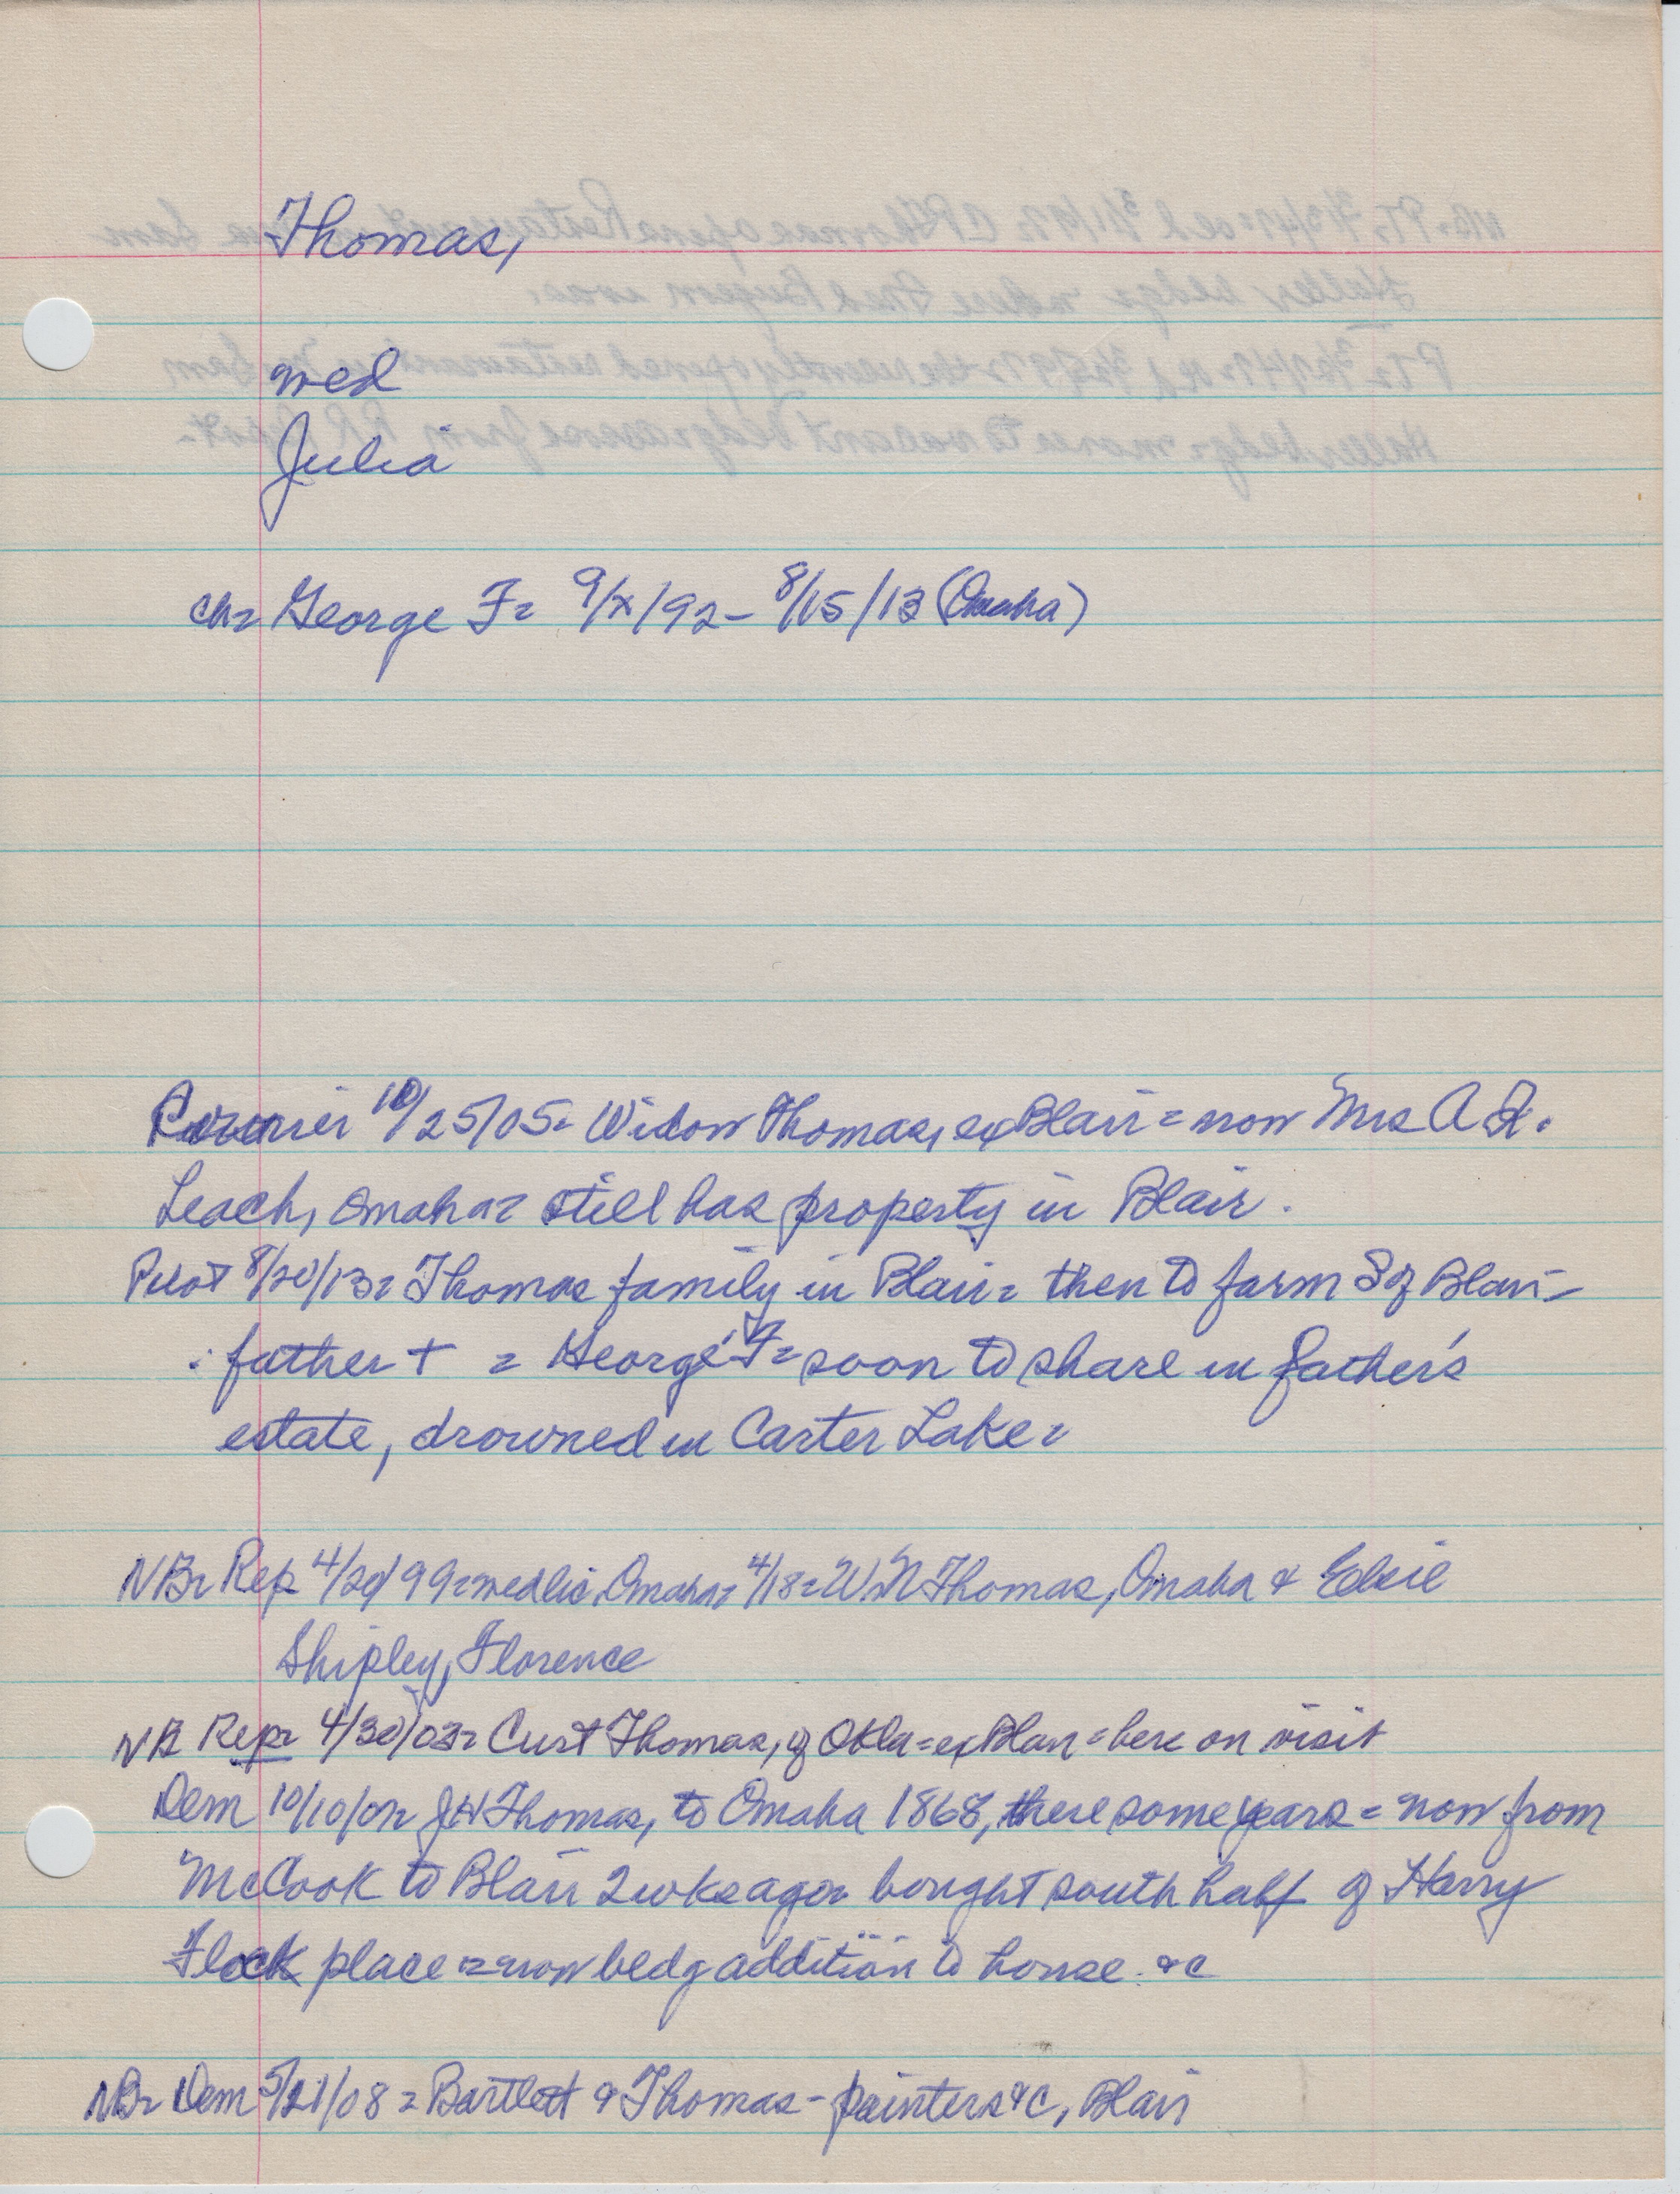 Thomas,
wed
Julia
ch= George F= 9/x/92 - 8/15/13 (Omaha)
Courier 10/25/05= Widow Thomas, ex Blair = now Mrs A
Leach, Omaha= still has property in Blair.
Pilot 8/20/13= Thomas family in Blair= then to farm S of Blair -
father + = George F= soon to share in father's
estate, drowned in Carter Lake=
NB= Rep 4/20/99= wed lic, Omaha= 4/18= W N Thomas, Omaha & Elsie
Shipley, Florence
NB Rep= 4/30/03= Curt Thomas, of Okla = ex Blair = here on visit
Dem 10/10/07= JH Thomas, to Omaha 1868, there some years = now from
McCook to Blair 2 wks ago= bought south half of Harry
Flock place = now bldg addition to house. &c
NB= Dem 5/21/08 = Bartlett & Thomas - painters &c, Blair